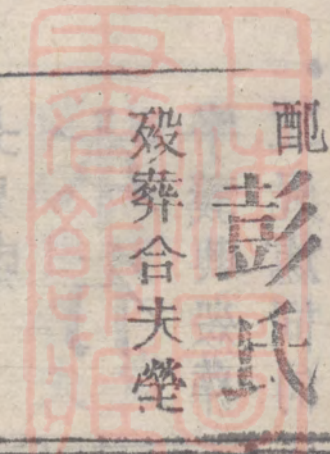 配
彭氏
歿葬合夫塋